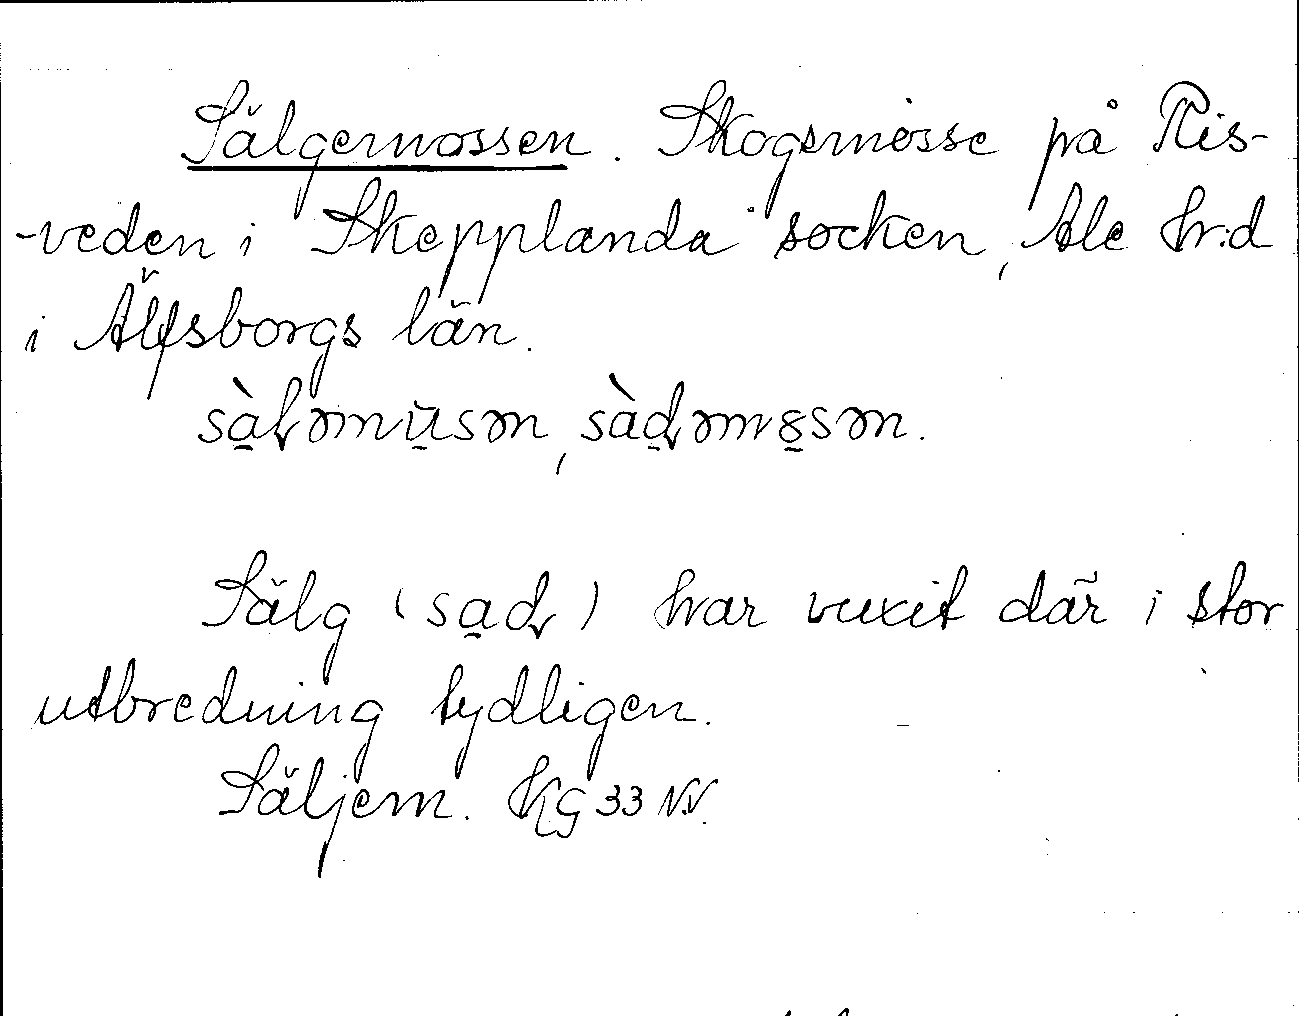 Sälgemossen. Skogsmosse på Ris-
-veden i Skepplanda socken, Ale h:d
i Älfsborgs län.
Sälg ( ) har vuxit där i stor
utbredning tydligen.
Säljem. KG 33 NV.